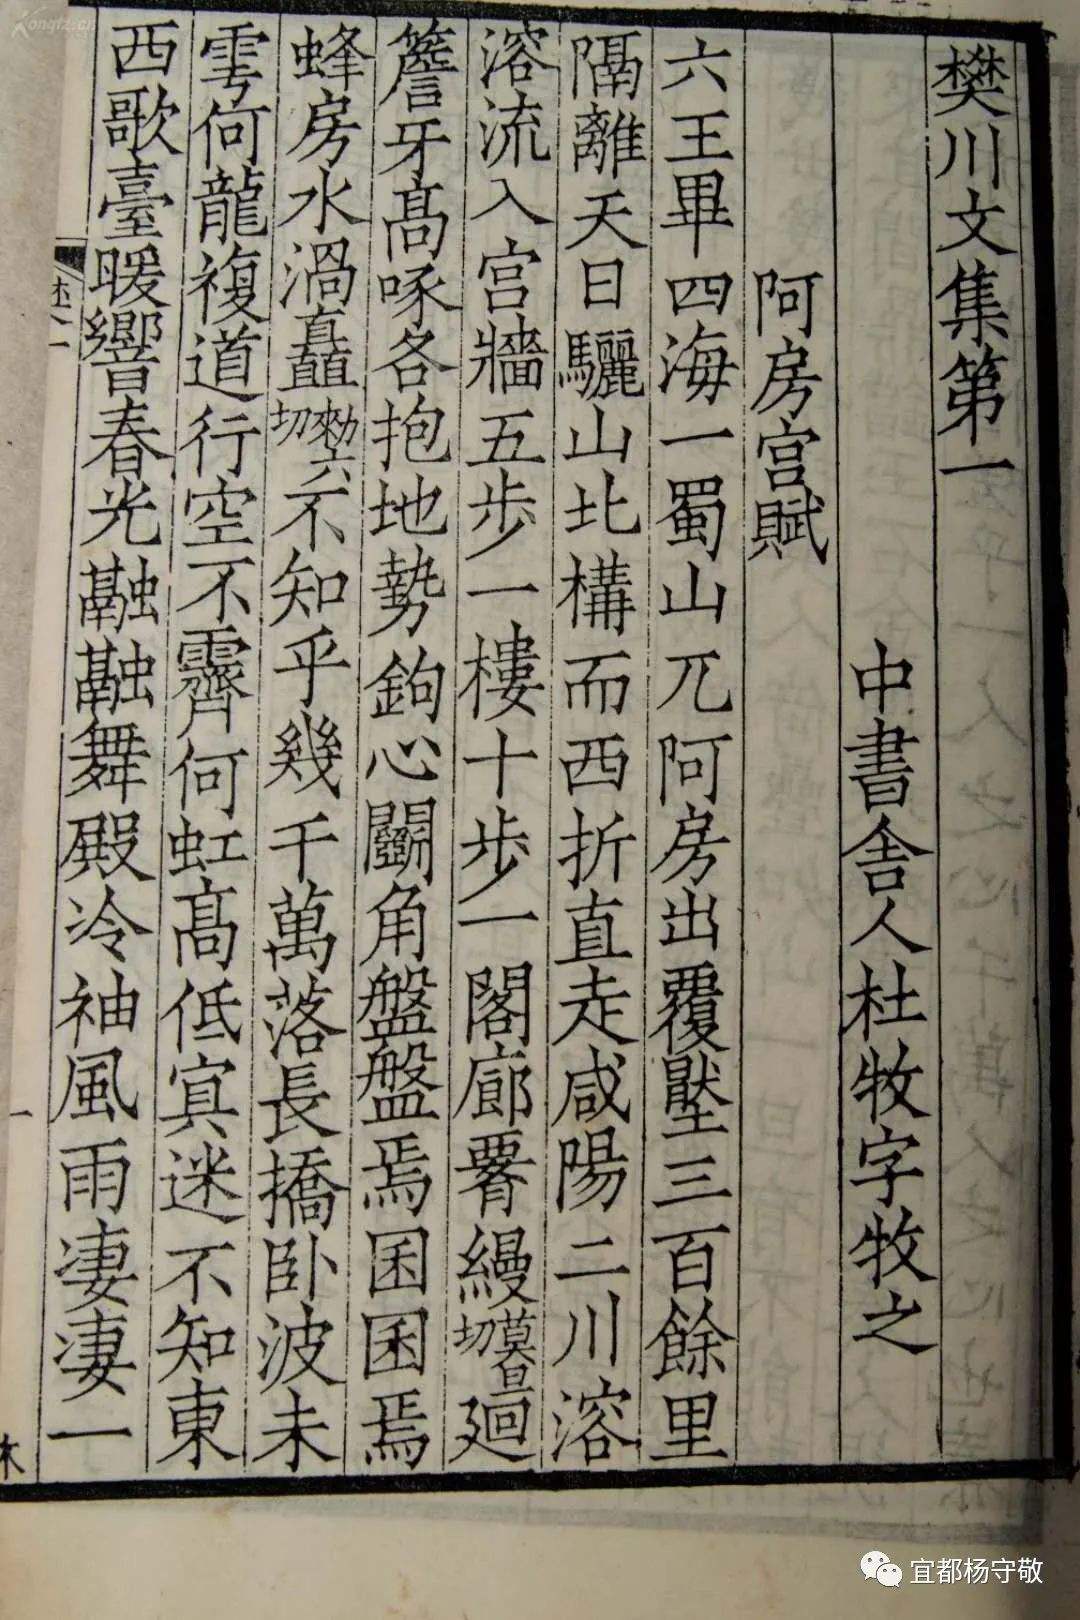 樊川文集第一
中書舍人杜牧字牧之
阿房宫賦
六王畢四海一蜀山兀阿房出覆壓三百餘里
隔離天日驪山北構而西折直走咸陽二川溶
溶流入宫牆五步一樓十步一閣廊署縵莫旦切廻
簷牙髙啄各抱地勢鉤心鬭角盤盤焉囷囷焉
蜂房水渦矗勑六切不知乎幾千萬落長橋卧波未
雩何龍複道行空不霽何虹髙低寘迷不知東
西歌臺暖響春光融融舞殿冷袖風雨凄凄一
宜都杨守敬